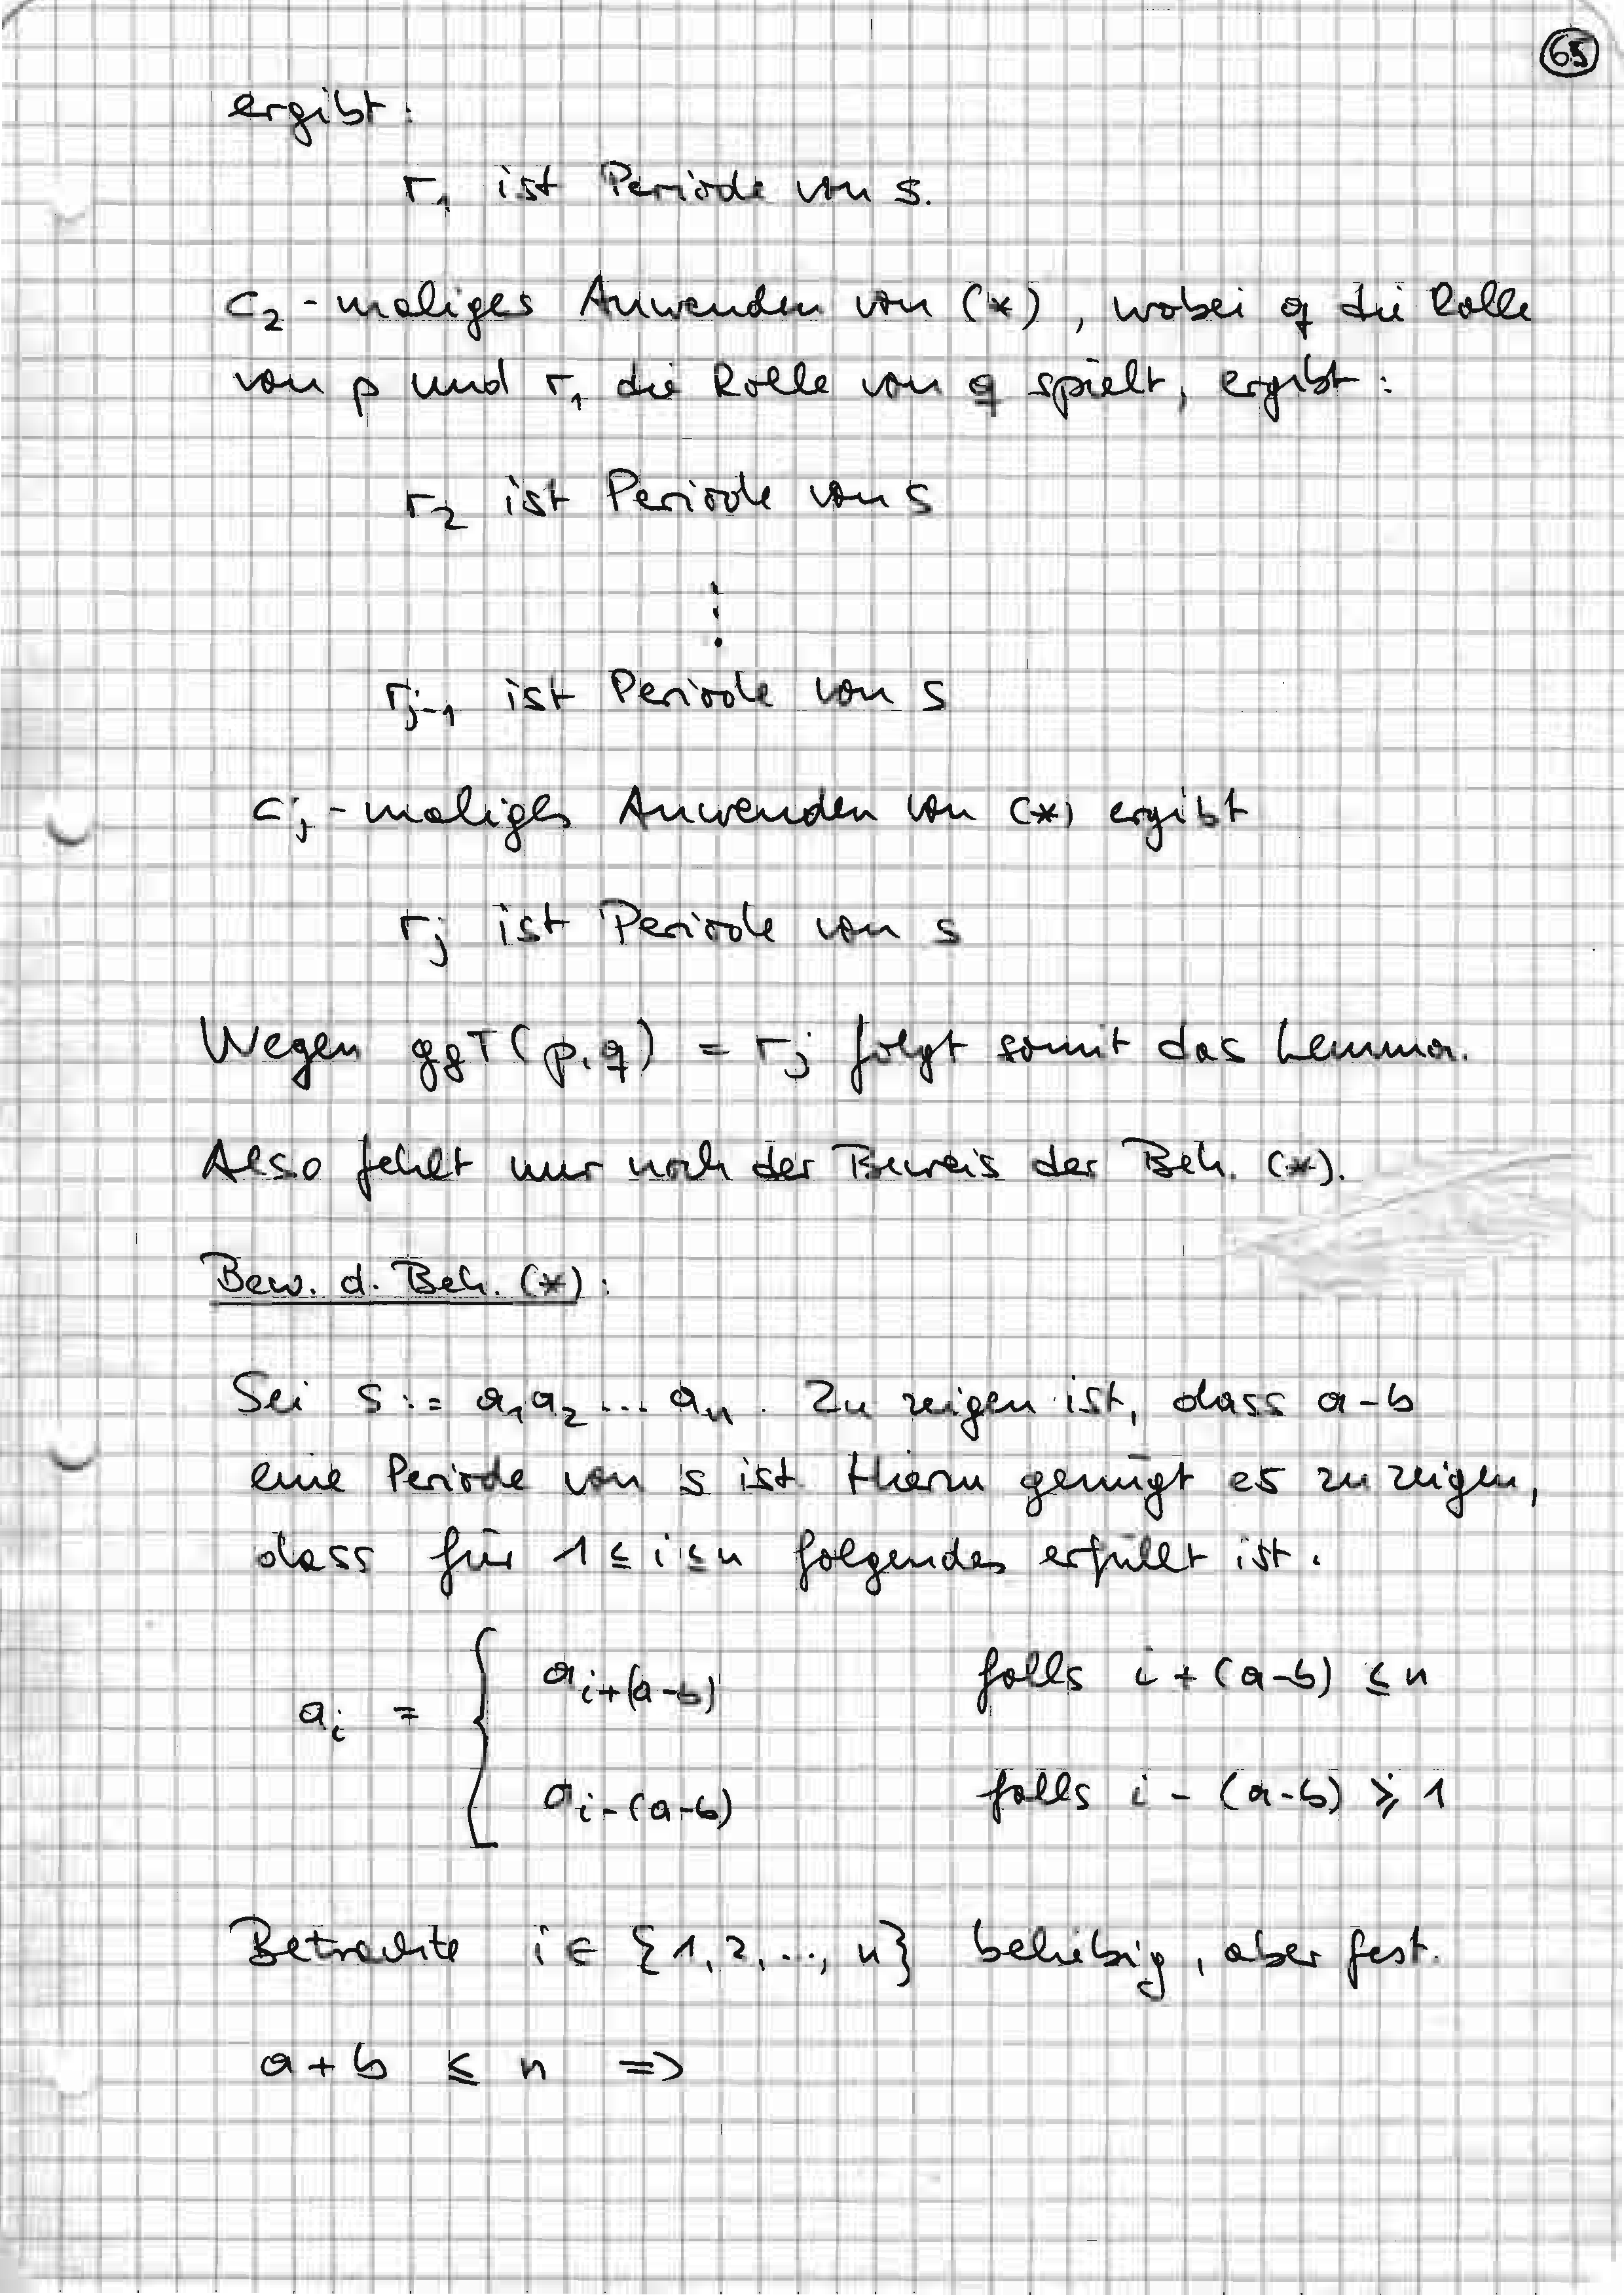 65
ergibt:
r₁ ist Periode von s.
c₂-maliges Anwenden von (*), wobei q die Rolle
von p und r₁ die Rolle von q spielt, ergibt:
r₂ ist Periode von s
⋮
r_{j-1} ist Periode von s
c_j-maliges Anwenden von (*) ergibt
r_j ist Periode von s
Wegen ggT(p,q) = r_j folgt somit das Lemma.
Also fehlt nur noch der Beweis der Beh. (*).
Bew. d. Beh. (*):
Sei s := a₁a₂...aₙ. Zu zeigen ist, dass a-b
eine Periode von s ist. Hierzu genügt es zu zeigen,
dass für 1 ≤ i ≤ n folgendes erfüllt ist.
a_i = { a_{i+(a-b)} falls i+(a-b) ≤ n
a_{i-(a-b)} falls i-(a-b) ≥ 1
Betrachte i ∈ {1,2,..,n} beliebig, aber fest.
a+b ≤ n =>